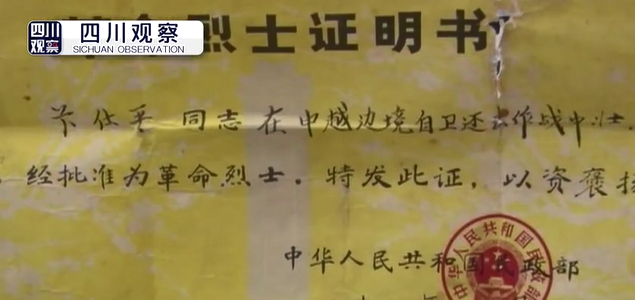 四川观察
四川观察
SICHUAN OBSERVATION
烈士证明书
同志在中越边境自卫还击作战中壮
经批准为革命烈士。特发此证，以资褒扬
中华人民共和国民政部
中华人民共和国民政部